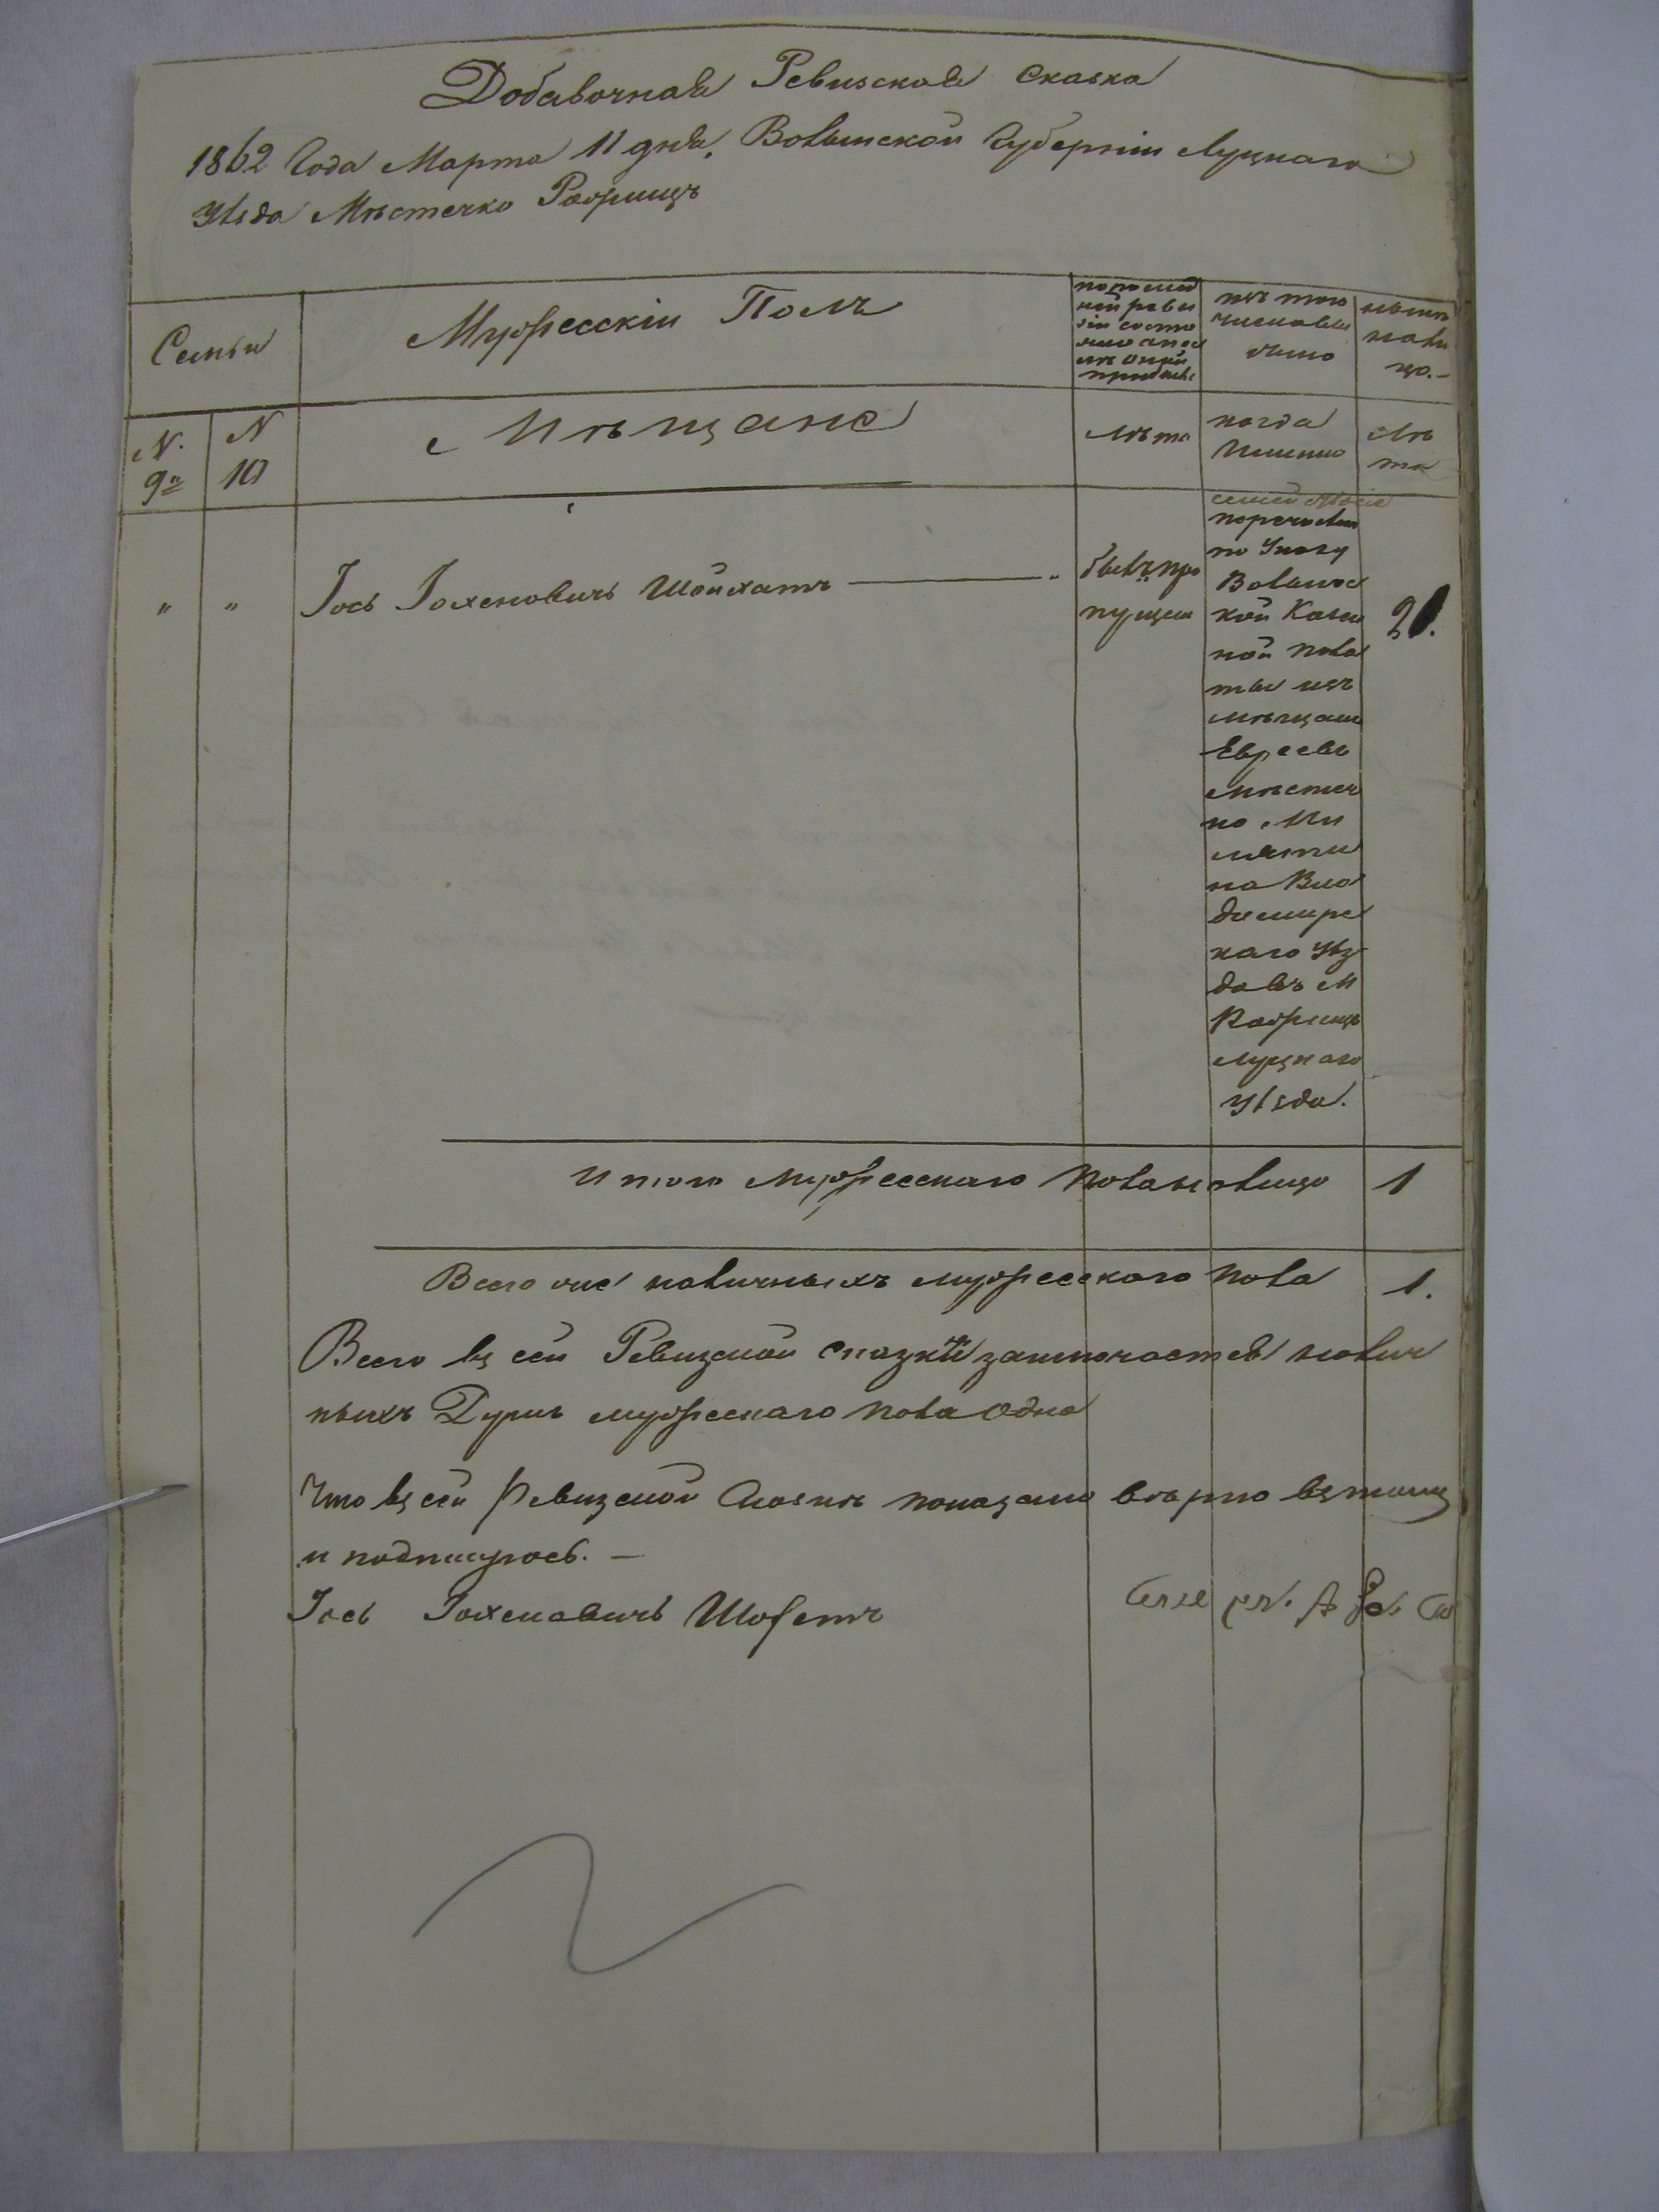 Добавочная Ревизская Сказка
1862 Года Марта 11 дня. Волынской Губерніи Луцкаго
Уѣзда Мѣстечко Рожищъ
Семьи
Мужесскій Полъ
по послѣд
ней реви
зіи состо
яло
изъ того
числа вы
было
нынѣ
на ли
цо.-
N.
9я
N
10
Мѣщане
Лѣта
когда
Именно
Лѣ
та
" " Іось Іохеновичъ Шойхатъ
былъ про
пущен
перечислен
по Указу
Волынс
кой Казен
ной Пала
ты изъ
мѣщан
Евреевъ
мѣстеч
ко Ми
лятн
на Вла
димирс
каго Уѣз
да въ М
Рожищъ
Луцкаго
Уѣзда.
Итого Мужесскаго Пола налицо 1
Всего наличныхъ мужесскаго пола 1.
Всего въ сей Ревизской сказкѣ заключается налич
ныхъ Душъ мужескаго пола одна
Что въ сей Ревизской Сказкѣ показано вѣрно въ томъ
и подписуюсь. -
Іось Іохеновичъ Шохетъ